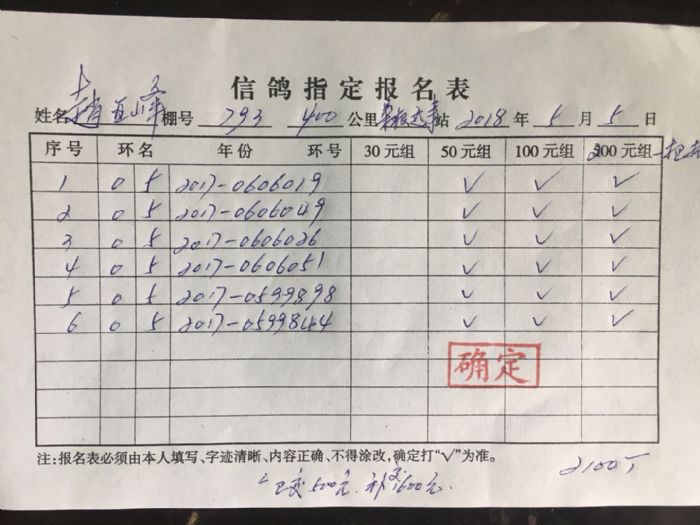 信鸽指定报名表
姓名 赵 棚号 793 400 公里 站 2018 年 5 月 5 日
序号 环名 年份 环号 30元组 50元组 100元组 200元组
1 0 5 2017-0606019 √ √ √
2 0 5 2017-0606049 √ √ √
3 0 5 2017-0606026 √ √ √
4 0 5 2017-0606051 √ √ √
5 0 5 2017-0599898 √ √ √
6 0 5 2017-0599844 √ √ √
确定
注:报名表必须由本人填写、字迹清晰、内容正确、不得涂改,确定打“√”为准。
2100
已交500元. 补交1600元.